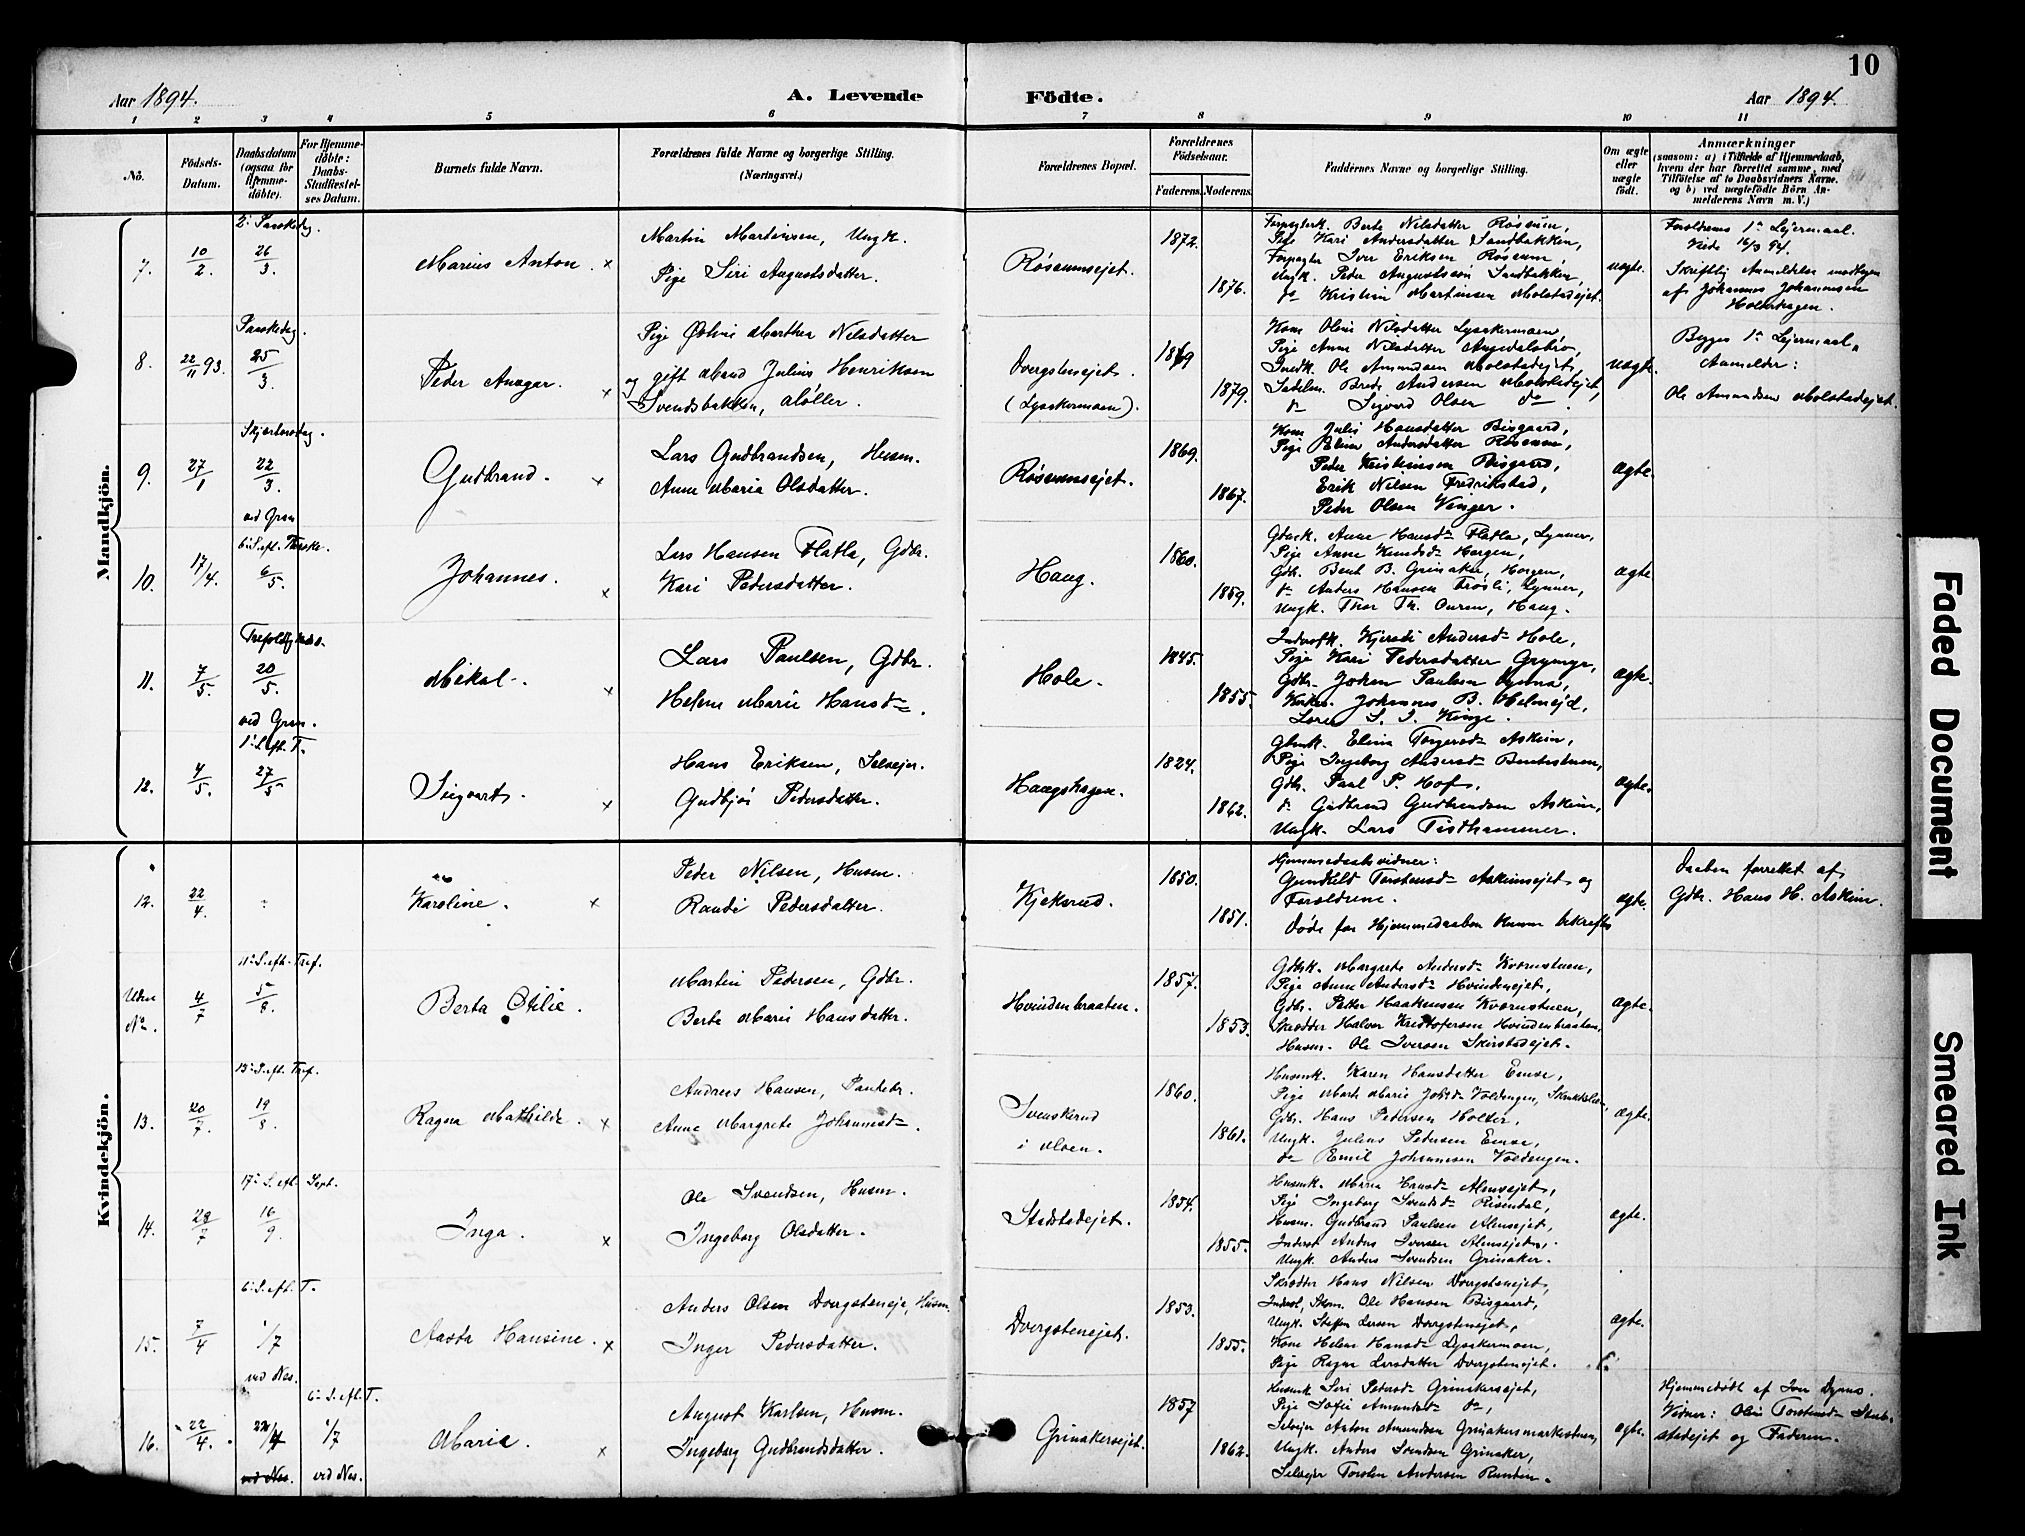 10
Aar 1894.
A. Levende Födte.
Aar 1894.
1 2 3 4 5 6 7 8 9 10 11
No.
Födsels-Datum.
Daabsdatum (ogsaa for Hjemmedöbte).
For Hjemmedöbte: Daabs-Stadfæstelses Datum.
Barnets fulde Navn.
Forældrenes fulde Navne og borgerlige Stilling.
(Næringsvei.)
Forældrenes Bopæl.
Forældrenes Födselsaar.
Faderens. Moderens.
Faddernes Navne og borgerlige Stilling.
Om ægte eller uægte födt.
Anmærkninger
(saasom: a) i Tilfælde af Hjemmedaab, hvem der har forrettet samme, med Tilföielse af to Daabsvidners Navne, og b) ved uægtefödte Börn Anmelderens Navn m. V.)
Mandkjön.
7. 10/2. 2. Paaskedag. 26/3. Marius Anton. x
Martin Martinsen, Ungk.
Pige Siri Augustsdatter.
Røsumsejet. 1872. 1876.
Berte Nilsdatter Røsum,
Pige Kari Andersdatter Sandbakken,
Forpagter Iver Eriksen Røsum,
Ungk. Peder Augustsen Sandbakken,
do Kristian Martinsen Molstadejet.
uægte.
Forældrenes 1ste Lejermaal.
16/3 94.
Skriftlig Anmeldelse modtagen
af Johannes Johannesen
Holenhagen.
8. 22/11 93. Paaskedag. 25/3. Peder Ansgar. x
Pige Østine Marthea Nilsdatter
og gift Mand Julius Henriksen
Svendsbakken, Møller.
Dvergstensejet.
(Lysakermoen). 1869 1879.
Kone Oline Nilsdatter Lysakermoen,
Pige Anne Nilsdatter Angedalsbro,
Indk. Ole Amundsen Molstadejet,
Sadelm. Brede Andersen Molstadejet,
do Sigvard Olsen do.
uægte.
Begges 1ste Lejermaal.
Anmelder:
Ole Amundsen Molstadejet.
9. 27/1 Skjærtorsdag. 22/3. ved Gran Gudbrand. x
Lars Gudbrandsen, Husm.
Anne Maria Olsdatter.
Røsumsejet. 1869. 1867.
Kone Julie Hansdatter Bisgaard,
Pige Eline Andersdatter Røsum,
Peder Kristiansen Bisgaard,
Erik Nilsen Fredrikstad,
Peder Olsen Vinger.
ægte.
10. 17/4. 6. S. eft. Paaske. 6/5. Johannes. x
Lars Hansen Flatla, Gdbr.
Kari Pedersdatter.
Haug. 1860. 1859.
Gdbrk. Anne Hansd. Flatla, Lynner,
Pige Anne Knudsd. Horgen,
Gdbr. Bent B. Grinaker, Horgen,
do Anders Hansen Frøsli, Lynner,
Ungk. Thor Th. Ouren, Haug.
ægte.
11. 7/5. 20/5. ved Gran. Mikal. x
Lars Paulsen, Gdbr.
Helene Marie Hansd.
Hole. 1845. 1855.
Kjersti Andersd. Hole,
Pige Kari Pedersdatter Grymyr,
Gdbr. Johan Paulsen Dynna,
Johannes B. Helmejd,
Kinge.
ægte.
12. 4/5. 1. S. eft. T. 27/5 Sigvart. x
Hans Eriksen, Selvejer.
Gudbjør Pedersdatter.
Haugshagen. 1824. 1862.
Elina Torgersd. Askim,
Pige Ingeborg Andersd. Bentestuen,
Gdbr. Paal P. Hof,
do Gudbrand Gudbrandsen Askim,
Ungk. Lars Tisthammer.
ægte.
Kvindekjön.
12. 22/4. Karoline. x
Peder Nilsen, Husm.
Randi Pedersdatter.
Kjeksrud. 1850. 1851.
Hjemmedaabsvidner:
Gunhild Torstensd. Askimsejet og
Forældrene.
Døde før Hjemmedaaben kunne bekræftes
ægte.
Daaben forrettet af
Gdbr. Hans H. Askim.
Uden No. 4/7 11. S. eft. Tref. 5/8. Berta Otilie.
Martin Pedersen, Gdbr.
Berte Marie Hansdatter.
Hvindenbraaten. 1857. 1853.
Gdbrk. Margrete Andersd. Kvernstuen,
Pige Anne Andersd. Hvindenejet,
Gdbr. Petter Haakensen Kvernstuen,
Skrædder Halvor Kristofersen Hvindenbraaten,
Husm. Ole Iversen Skirstadejet.
ægte.
13. 20/7. 13. S. eft. Tref. 19/8. Ragna Mathilde. x
Andreas Hansen, Pantebr.
Anne Margrete Johannesd.
Svenskerud
i Moen. 1860. 1861.
Husmk. Karen Hansdatter Emse,
Pige Marte Marie Johsd. Voldengen,
Gdbr. Hans Pedersen Holter,
Ungk. Julius Pedersen Emse,
do Emil Johannesen Voldengen.
ægte.
14. 28/7 17. S. eft. 16/9. Inga. x
Ole Svendsen, Husm.
Ingeborg Olsdatter.
Stadstadejet. 1854. 1855.
Husmk. Maria Hansd. Almsejet,
Pige Ingeborg Svendsd. Rosendal,
Husm. Gudbrand Paulsen Almsejet,
Inderst Anders Iversen Almsejet,
Ungk. Anders Svendsen Grinaker.
ægte.
15. 7/4 6. S. eft. T. 1/7 ved Nes. Aasta Hansine. x
Anders Olsen Dvergsteneje, Husm.
Inger Pedersdatter.
Dvergstensejet. 1853. 1855.
Skrædder Hans Nilsen Dvergstenejet,
Ole Hansen Bisgaard,
Ungk. Steffen Larsen Dvergstenejet,
Kone Helene Hansd. Lysakermoen,
Pige Ragna Larsdatter Dvergstenejet.
ægte.
16. 22/4. 22/4 ved Nes. 6. S. eft. T. 1/7 ved Nes. Maria. x
August Karlsen, Husm.
Ingeborg Gudbrandsdatter.
Grinakersejet. 1857 1862.
Husmk Siri Pedersd. Grinakersejet,
Pige Sofie Amundsd. do,
Selvejer Anton Amundsen Grinakersmarkestuen,
Ungk. Anders Svendsen Grinaker,
Selvejer Torsten Andersen Rundin.
ægte.
Hjemmedøbt af Iver Dynna.
Vidner: Olia Torstensd.
og Faderen.
Faded Document
Smeared Ink